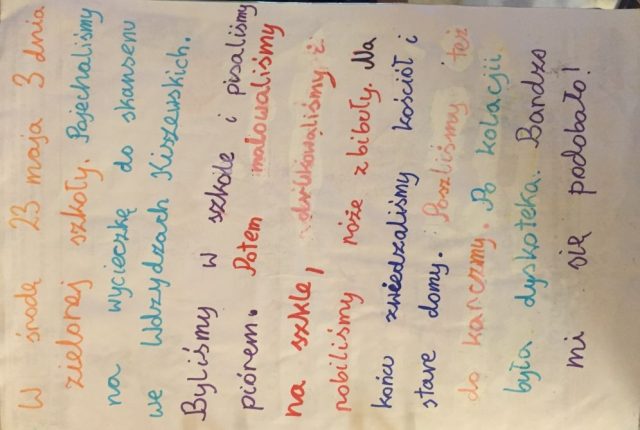 W środę 23 maja 3 dnia
zielonej szkoły. Pojechaliśmy
na wycieczkę do skansenu
we Wdzydzach Kiszewskich.
Byliśmy w szkole i pisaliśmy
piórem. Potem malowaliśmy
na szkle, drukowaliśmy i
robiliśmy róże z bibuły. Na
końcu zwiedzaliśmy kościół i
stare domy. Poszliśmy i też
do karczmy. Po kolacji
była dyskoteka. Bardzo
mi się podobało!